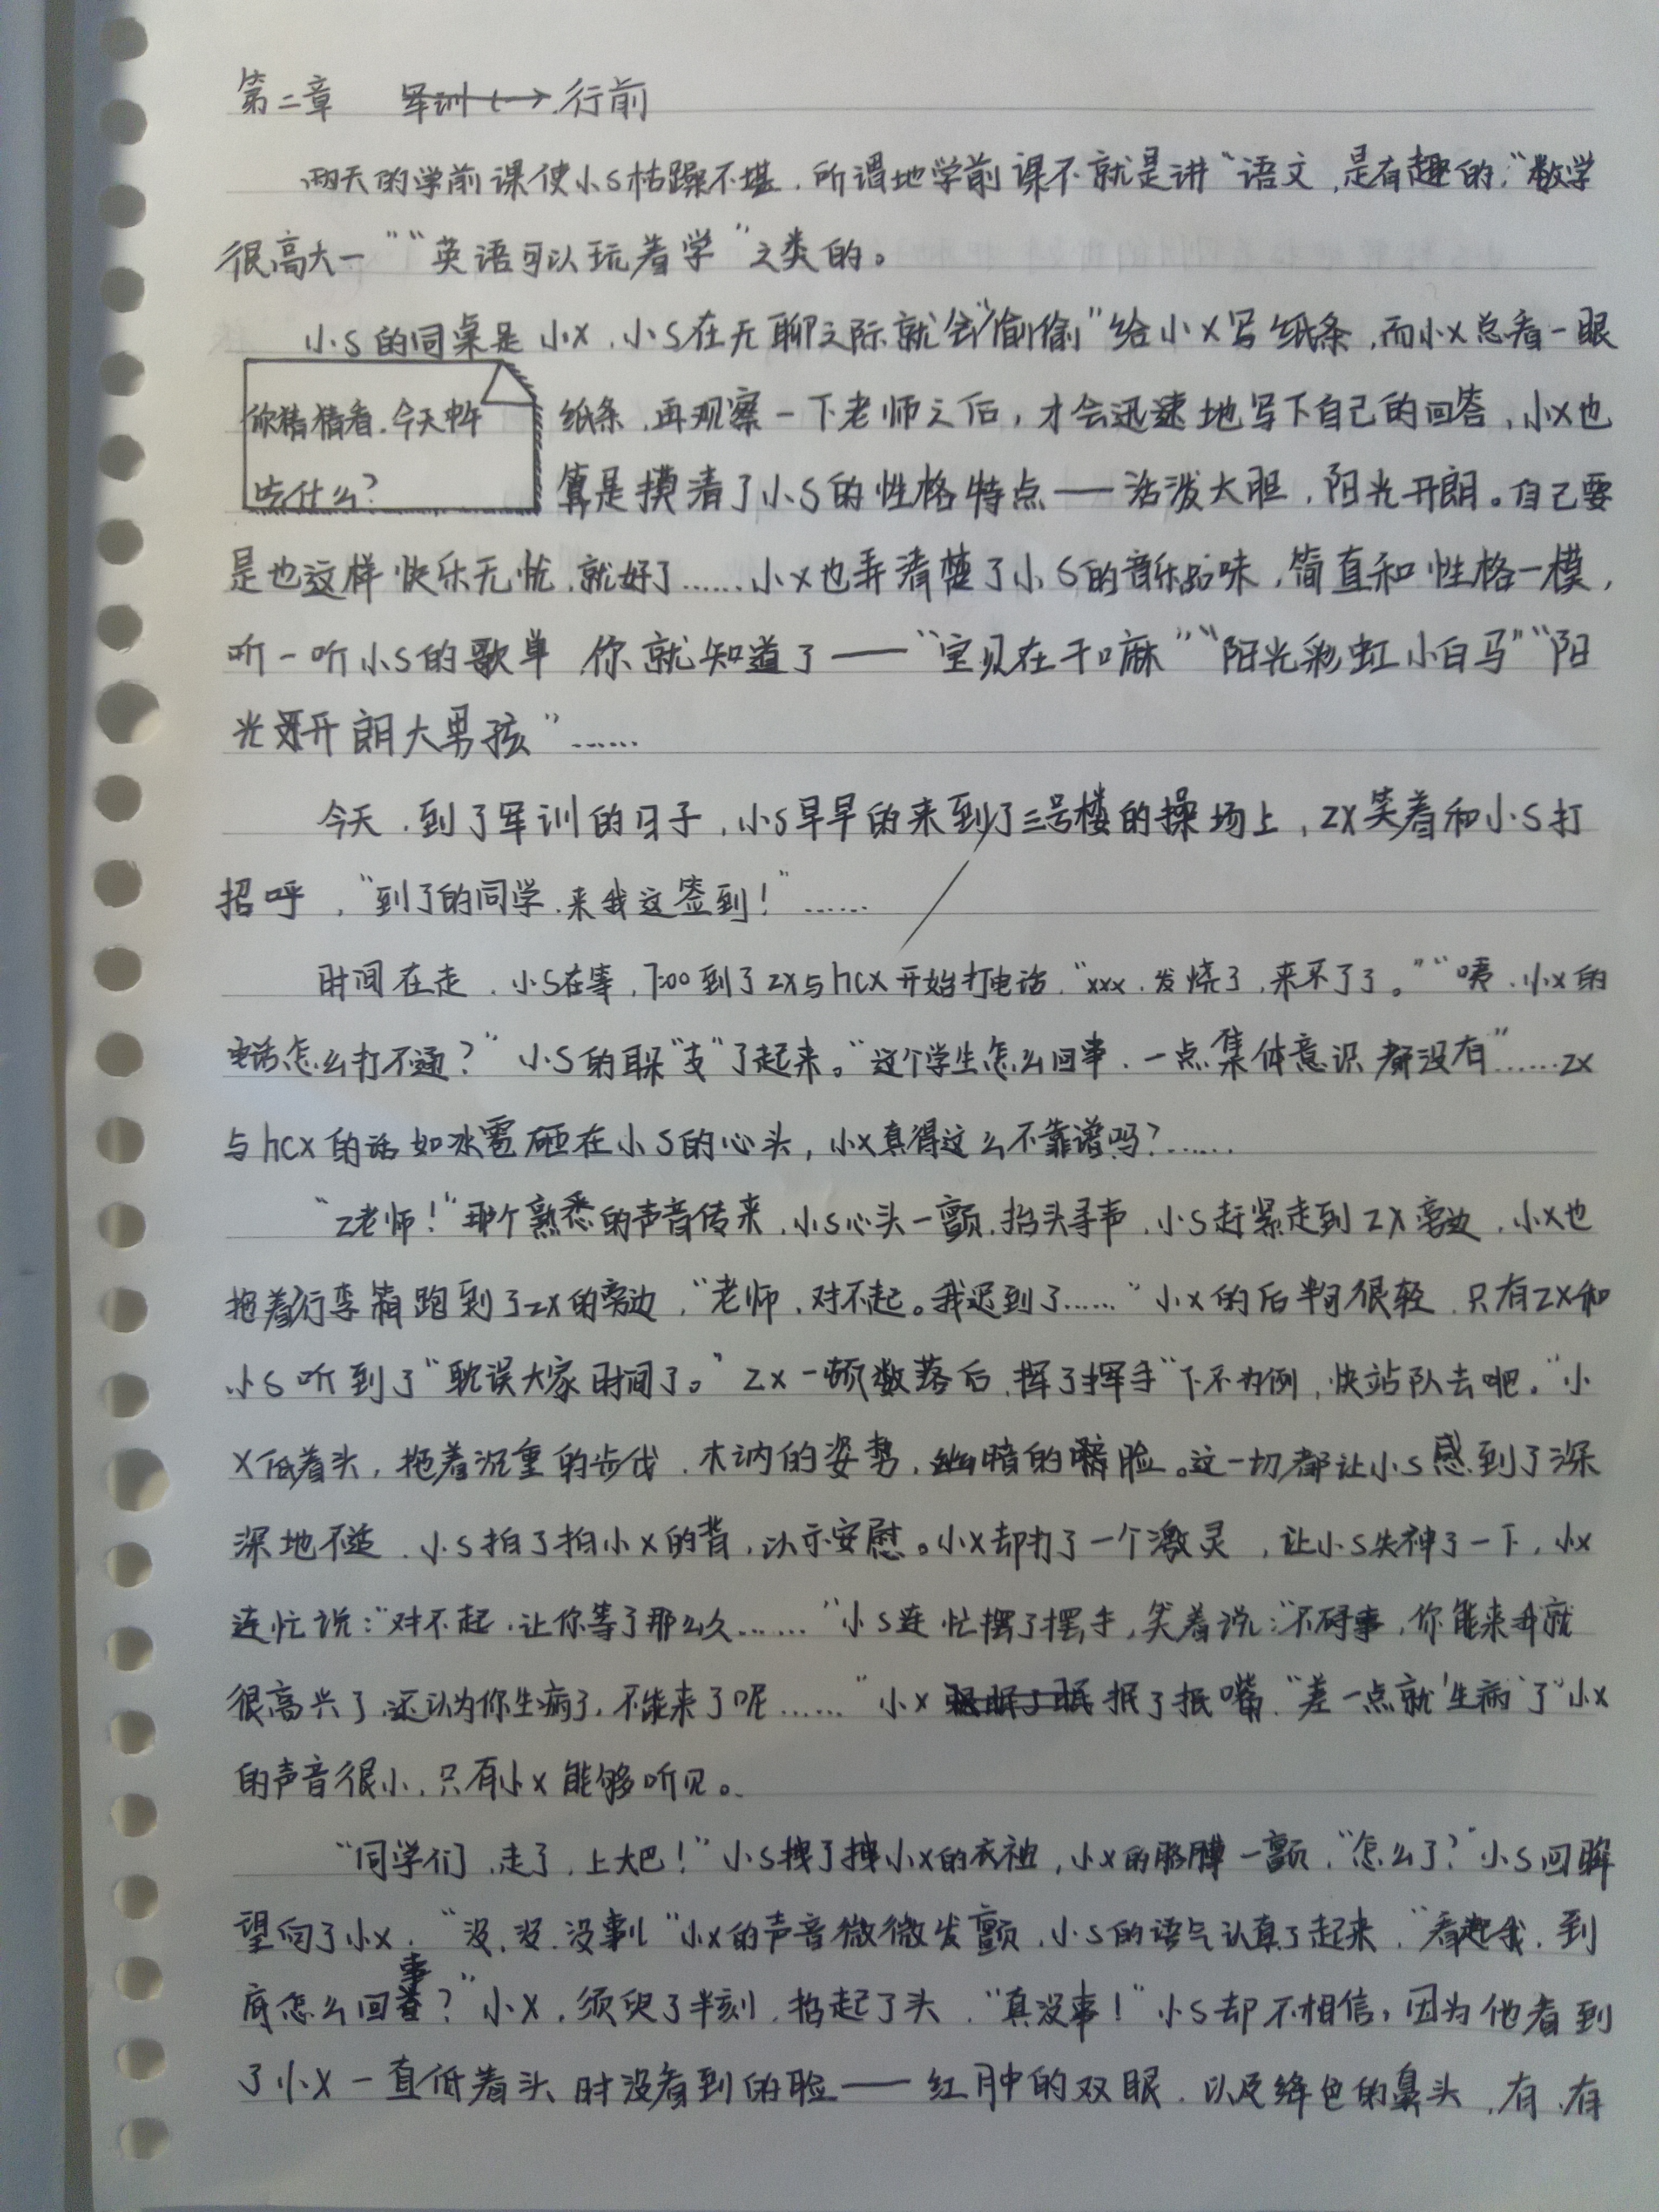 第二章 行前
两天的学前课使小S枯躁不堪，所谓地学前课不就是讲“语文，是有趣的，”“数学
很高大一”“英语可以玩着学”之类的。
小S的同桌是小X，小S在无聊之际就会“偷偷”给小X写纸条，而小X总看一眼
你猜猜看，今天中午
吃什么？
纸条，再观察一下老师之后，才会迅速地写下自己的回答，小X也
算是摸清了小S的性格特点——活泼大胆，阳光开朗。自己要
是也这样快乐无忧，就好了……小X也弄清楚了小S的音乐品味，简直和性格一模，
听一听小S的歌单 你就知道了——“宝贝在干嘛”“阳光彩虹小白马”“阳
光开朗大男孩”……
今天，到了军训的日子，小S早早的来到了三号楼的操场上，ZX笑着和小S打
招呼，“到了的同学，来我这签到！”……
时间在走，小S在等，7:00到了ZX与hcx开始打电话，“xxx，发烧了，来不了了。”“咦，小X的
电话怎么打不通？”小S的耳朵“支”了起来。“这个学生怎么回事，一点集体意识都没有”……ZX
与hcx的话如冰雹砸在小S的心头，小X真得这么不靠谱吗？……
“Z老师！”那个熟悉的声音传来，小S心头一颤，抬头寻声，小S赶紧走到ZX旁边，小X也
拖着行李箱跑到了ZX的旁边，“老师，对不起。我迟到了……”小X的后半句很轻，只有ZX和
小S听到了“耽误大家时间了。”ZX一顿数落后，挥了挥手“下不为例，快站队去吧。”小
X低着头，拖着沉重的步伐，木讷的姿势，幽暗的脸。这一切都让小S感到了深
深地不适，小S拍了拍小X的背，以示安慰。小X却打了一个激灵，让小S失神了一下，小X
连忙说：“对不起，让你等了那么久……”小S连忙摆了摆手，笑着说：“不碍事，你能来我就
很高兴了，还认为你生病了，不能来了呢……”小X抿了抿嘴，“差一点就‘生病’了”小X
的声音很小，只有小X能够听见。
“同学们，走了，上大巴！”小S拽了拽小X的衣袖，小X的胳膊一颤，“怎么了？”小S回眸
望向了小X，“没，没，没事儿”小X的声音微微发颤，小S的语气认真了起来，“看起我，到
底怎么回事？”小X，须臾了半刻，抬起了头，“真没事！”小S却不相信，因为他看到
了小X一直低着头时没看到的脸——红肿的双眼，以及绛色的鼻头，有，有